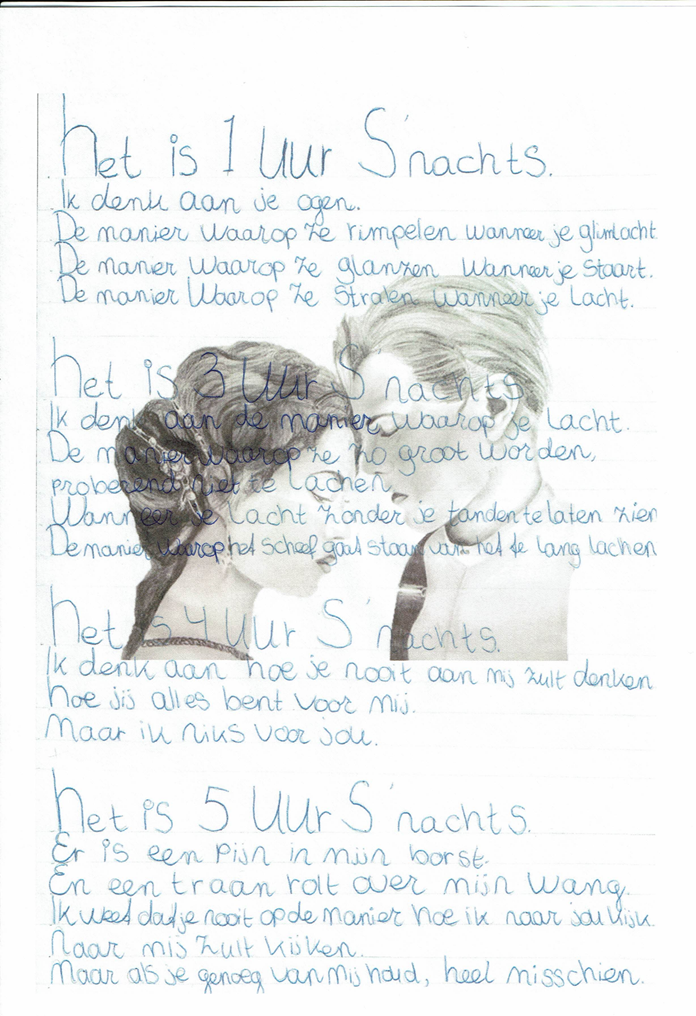 het is 1 uur S'nachts.
Ik denk aan je ogen.
De manier waarop ze rimpelen wanneer je glimlacht
De manier waarop ze glanzen Wanneer je Staart.
De manier Waarop ze Stralen Wanneer je Lacht.
het is 3 uur S'nachts.
Ik denk aan de manier waarop je lacht.
De manier waarop ze zo groot worden,
proberend niet te lachen,
Wanneer je lacht zonder je tanden te laten zien
De manier waarop het scheef gaat staan van het te lang lachen
het is 4 uur S'nachts.
Ik denk aan hoe je nooit aan mij zult denken
hoe jij alles bent voor mij.
Maar ik niks voor jou.
het is 5 uur S'nachts.
Er is een pijn in mijn borst.
En een traan rolt over mijn wang.
Ik weet dat je nooit op de manier hoe ik naar jou kijk.
Naar mij zult kijken.
Maar als je genoeg van mij houd, heel misschien.